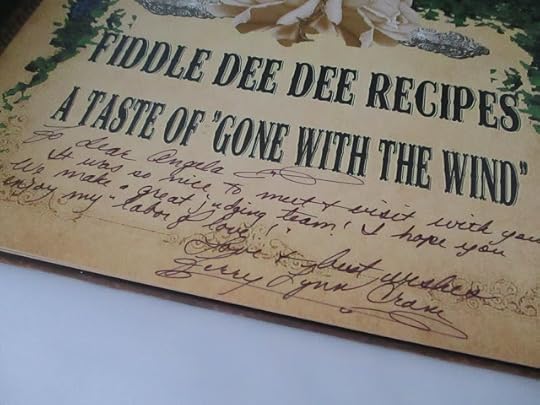 FIDDLE DEE DEE RECIPES
A TASTE OF "GONE WITH THE WIND"
To dear Angela
It was so nice to meet & visit with you.
We make a great judging team! I hope you
enjoy my "labor of love"!
Love & best wishes
Terry Lynn Crane